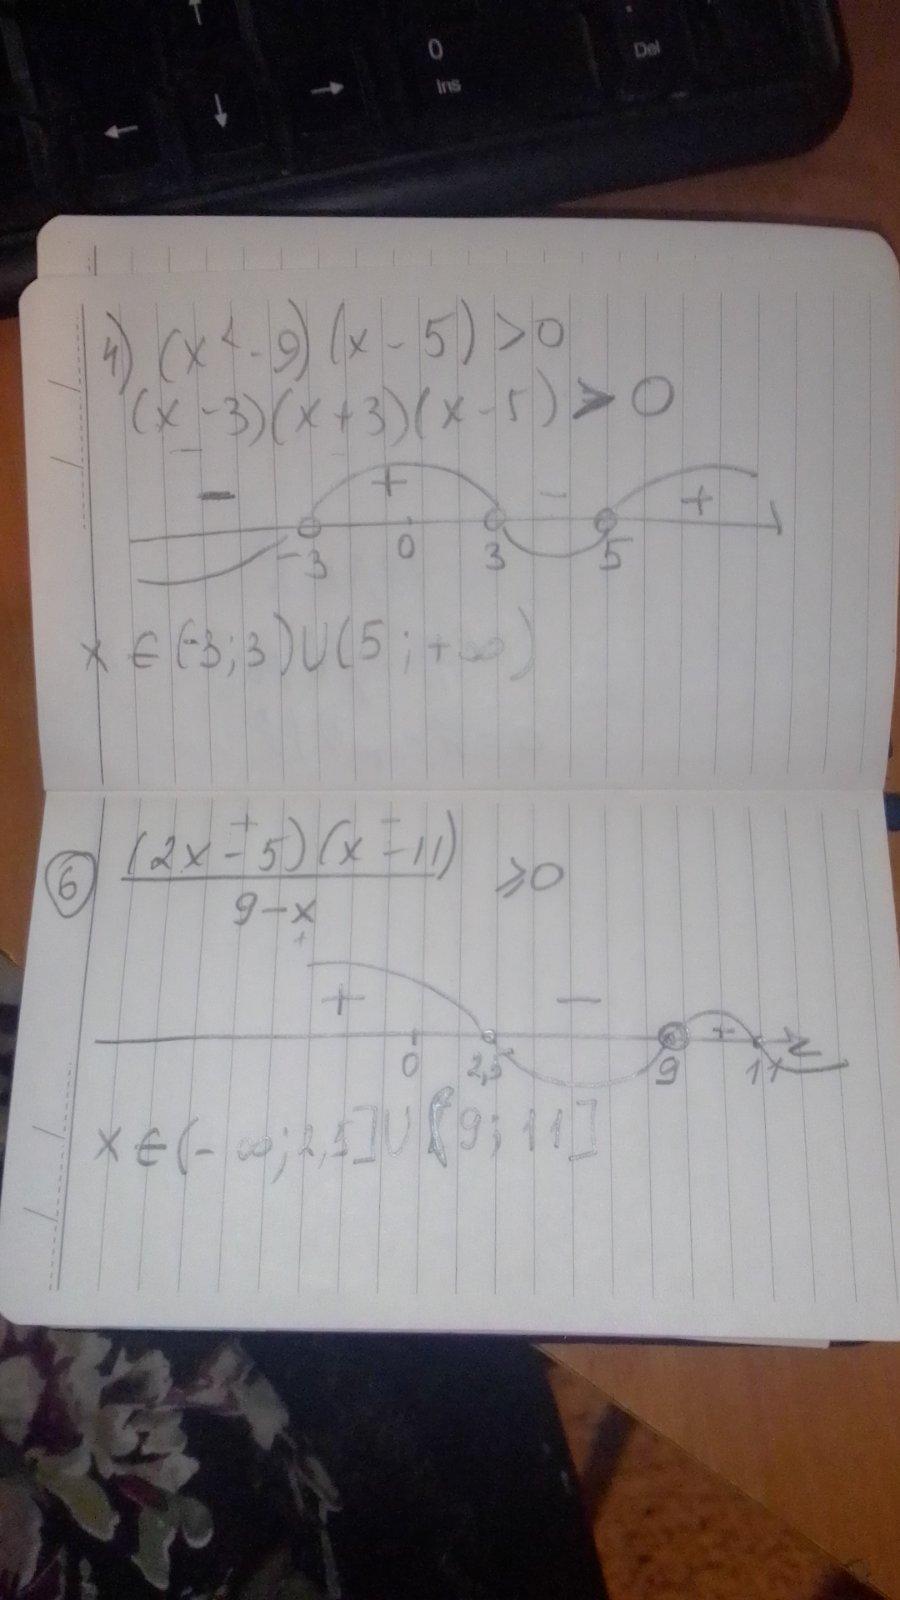 0
Ins
Del
4) (x² - 9)(x - 5) > 0
(x - 3)(x + 3)(x - 5) > 0
− + − +
-3 0 3 5
x ∈ (-3; 3) ∪ (5; +∞)
6 (2x - 5)(x - 11) / 9 - x ≥ 0
+ − +
0 2,5 9 11
x ∈ (-∞; 2,5] ∪ [9; 11]